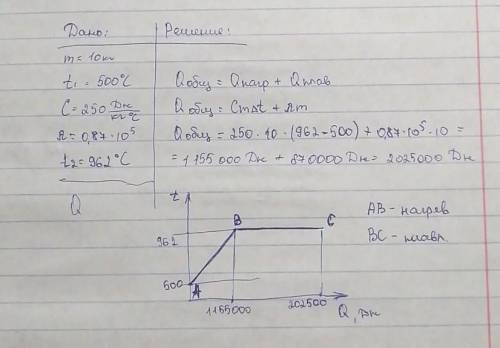 Дано:
Решение:
m = 10 кг
t₁ = 500°C
C = 250 Дж/кг°C
λ = 0,87·10⁵
t₂ = 962°C
Q
Qобщ = Qнагр + Qплав
Qобщ = CmΔt + λm
Qобщ = 250·10·(962-500) + 0,87·10⁵·10 =
= 1155000 Дж + 870000 Дж = 2025000 Дж
t
B
C
962
500
A
1155000
202500
Q, Дж
AB - нагрев
BC - плавл.